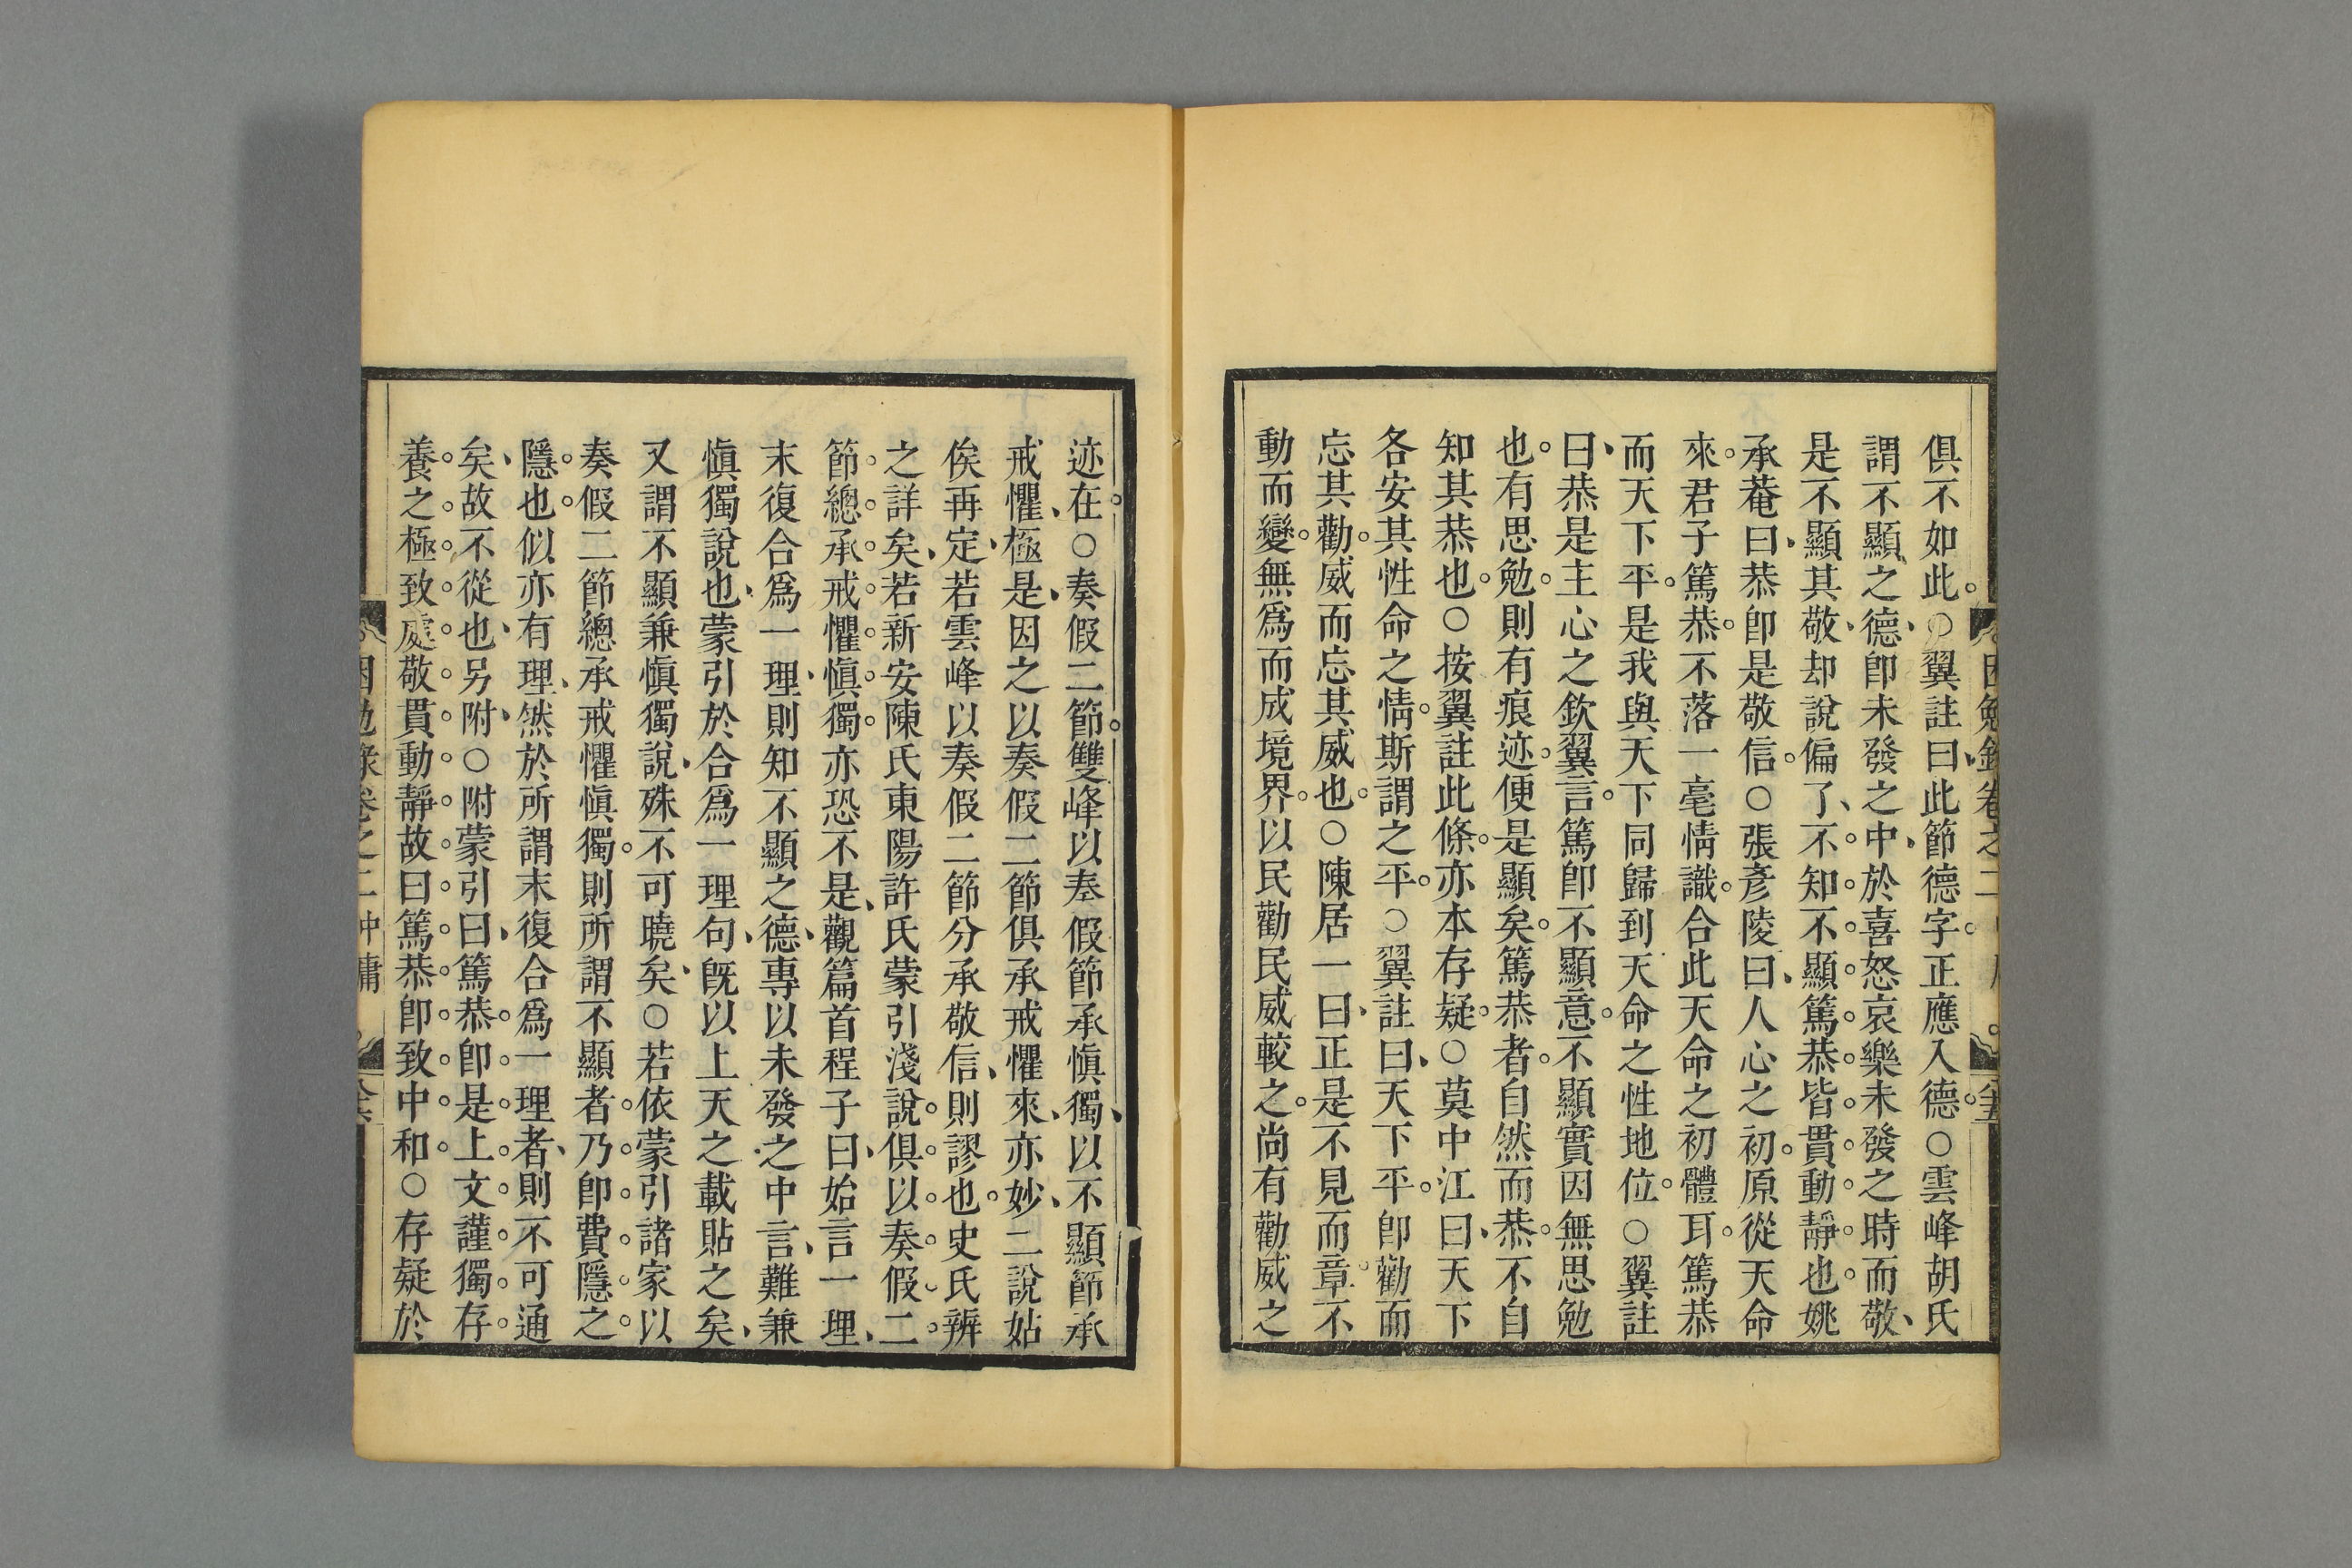 俱不如此○翼註曰此節德字正應入德○雲峰胡氏
謂不顯之德卽未發之中於喜怒哀樂未發之時而敬
是不顯其敬却說偏了不知不顯篤恭皆貫動靜也姚
承菴曰恭卽是敬信○張彥陵曰人心之初原從天命
來君子篤恭不落一毫情識合此天命之初體耳篤恭
而天下平是我與天下同歸到天命之性地位○翼註
曰恭是主心之欽翼言篤卽不顯意不顯實因無思勉
也有思勉則有痕迹便是顯矣篤恭者自然而恭不自
知其恭也○按翼註此條亦本存疑○莫中江曰天下
各安其性命之情斯謂之平○翼註曰天下平卽勸而
忘其勸威而忘其威也○陳居一曰正是不見而章不
動而變無爲而成境界以民勸民威較之尚有勸威之
迹在○奏假二節雙峰以奏假節承愼獨以不顯節承
戒懼極是因之以奏假二節俱承戒懼來亦妙二說姑
俟再定若雲峰以奏假二節分承敬信則謬也史氏辨
之詳矣若新安陳氏東陽許氏蒙引淺說俱以奏假二
節總承戒懼愼獨亦恐不是觀篇首程子曰始言一理
末復合爲一理則知不顯之德專以未發之中言難兼
愼獨說也蒙引於合爲一理句旣以上天之載貼之矣
又謂不顯兼愼獨說殊不可曉矣○若依蒙引諸家以
奏假二節總承戒懼愼獨則所謂不顯者乃卽費隱之
隱也似亦有理然於所謂末復合爲一理者則不可通
矣故不從也另附○附蒙引曰篤恭卽是上文謹獨存
養之極致處敬貫動靜故曰篤恭卽致中和○存疑於
困勉錄卷之二 中庸